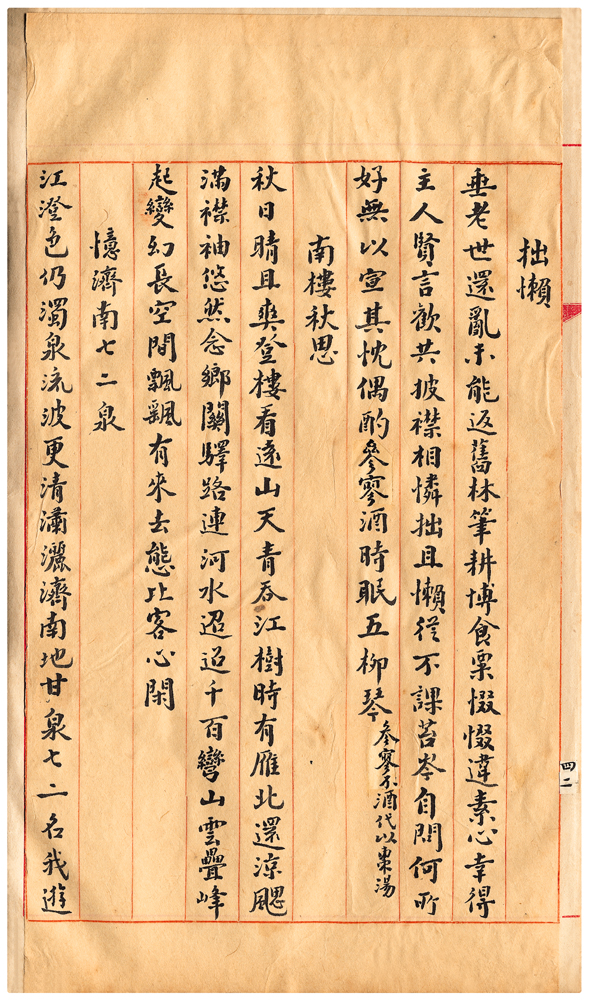 拙懶
垂老世還亂未能返舊林筆耕博食粟惙惙違素心幸得
主人賢言歡共披襟相憐拙且懶從不課苔岑自問何所
好無以宣其忱偶酌參寥酒時眠五柳琴參寥不酒代以棗湯
南樓秋思
秋日晴且爽登樓看遠山天青吞江樹時有雁北還涼颸
滿襟袖悠然念鄉關驛路連河水迢迢千百彎山雲疊峰
起變幻長空間飄飄有來去態比客心閑
憶濟南七二泉
江澄色仍濁泉流波更清瀟灑濟南地甘泉七二名我遊
四二